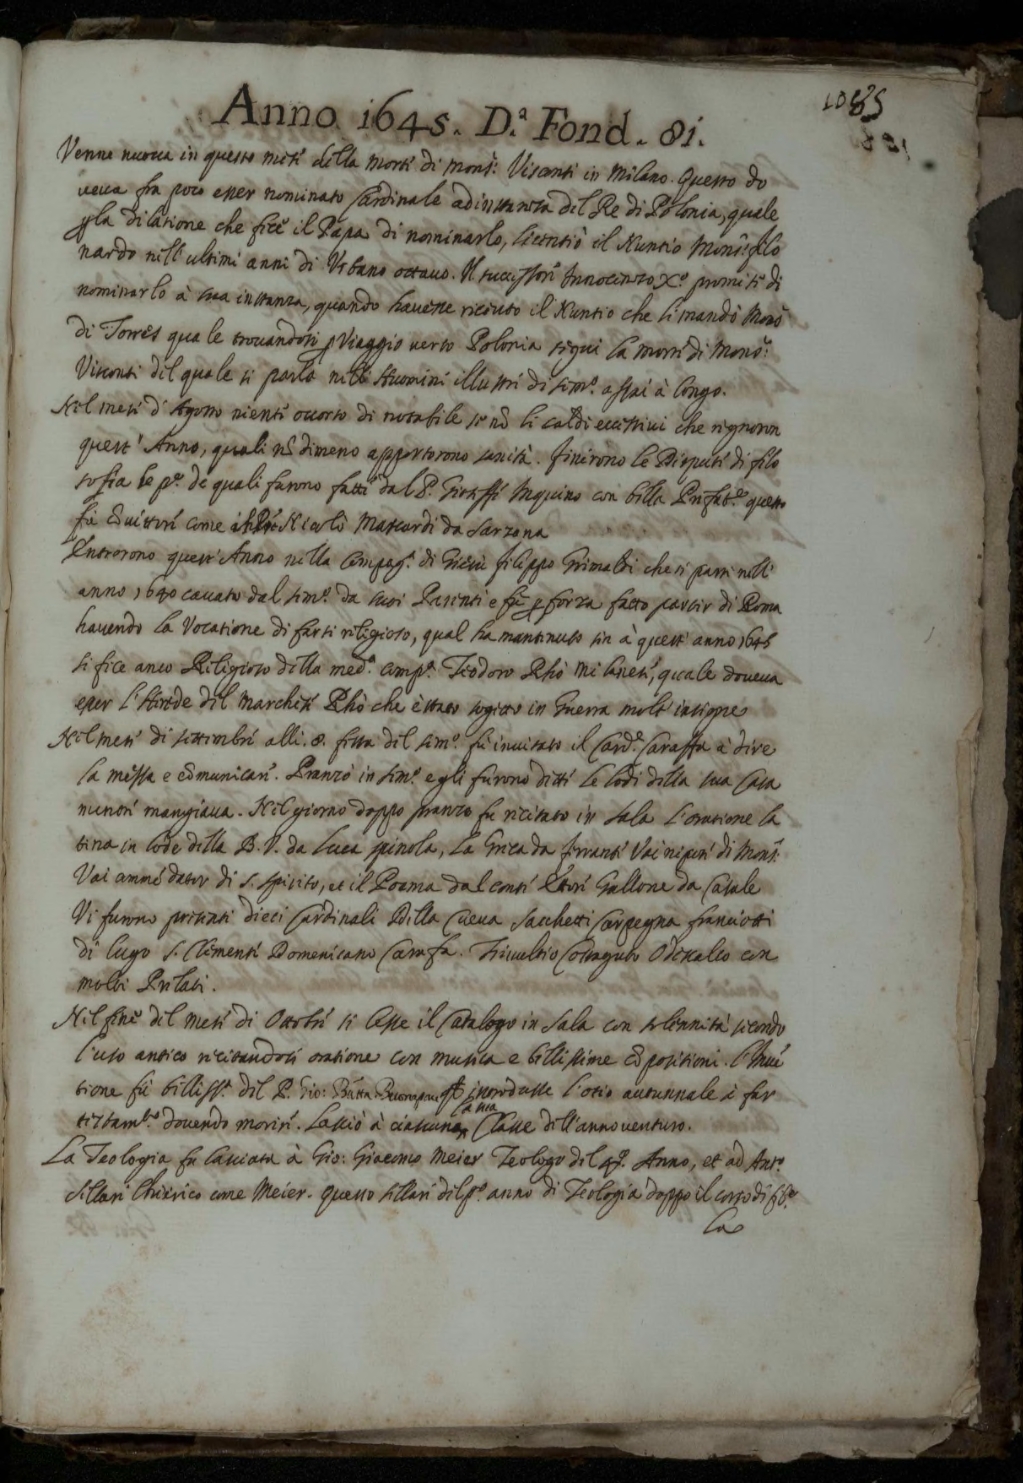 1085
Anno 1645. D.ª Fond. 81.
Venne nuova in questo mese della morte di Mons.r Visconti in Milano. Questo do
veva fra poco esser nominato Cardinale ad instanza del Re di Polonia, quale
p la dilatione che fece il Papa di nominarlo, licentiò il Nuntio Mons.r filo
nardo nell'ultimi anni di Urbano ottavo. Il successore Innocenzo X.º promise di
nominarlo à sua instanza, quando havesse riceuto il Nuntio che li mandò Mons.r
di Torres quale trovandosi p Viaggio verso Polonia seguì la morte di Mons.r
Visconti del quale si parla nell' Huomini illustri di sem.º assai à longo.
Nel mese d' Agosto niente occorso di notabile se nō li caldi eccessivi che regnoron
quest' Anno, quali nō dimeno apportorono sanità. finirono le Dispute di filo
sofia le p.e de quali furono fatte dal P. Inquino con bella Prefat.e questo
fù Nicolò Mascardi da Sarzana
Entrorono quest' Anno nella Compag.ª di Giesù filippo Grimaldi che si partì nell'
anno 1640 cavato dal sem.º da suoi Parenti e fù p forza fatto partir di Roma
havendo la Vocatione di farsi religioso, qual ha mantenuto sin à quest' anno 1645
si fece anco Religioso della med.ª comp.ª Teodoro Rhò milanese, quale doveva
esser l'Herede del Marchese Rhò che è stato sogetto in Guerra molt' insigne
Nel mese di settembre alli .8. festa del sem.º fù invitato il Card.e Caraffa à dire
la messa e cōmunicare. Pranzò in sem.º e gli furono dette le lodi della sua Casa
mentre mangiava. Nel giorno doppo pranzo fu recitato in sala l'oratione la
tina in lode della B. V. da Luca spinola, la Greca da ferrante Vai nepote di Mons.r
Vai cōmendator di S. Spirito, et il Poema dal conte Gallone da Casale
Vi furono presenti dieci Cardinali Della Cueva Sacchetti Carpegna franciotti
di Lugo S. Clemente Domenicano Carafa. Trivultio Costaguto Odescalco con
molti Prelati.
Nel fine del mese di Ottobre si lesse il Catalogo in Sala con solennità secondo
l'uso antico recitandosi oratione con musica e bellissime cōpositioni. l'Inven
tione fù belliss.ª del P. Gio: Batta introdusse l'otio autunnale à far
testam.to dovendo morire. Lasciò à ciascuna la sua Classe dell'anno venturo.
La Teologia fu lasciata à Gio: Giacomo Meier Teologo del 4.º Anno, et ad Ant.º
Sillari Chierico come Meier. Questo Sillari del p.º anno di Teologia doppo il corso di
la